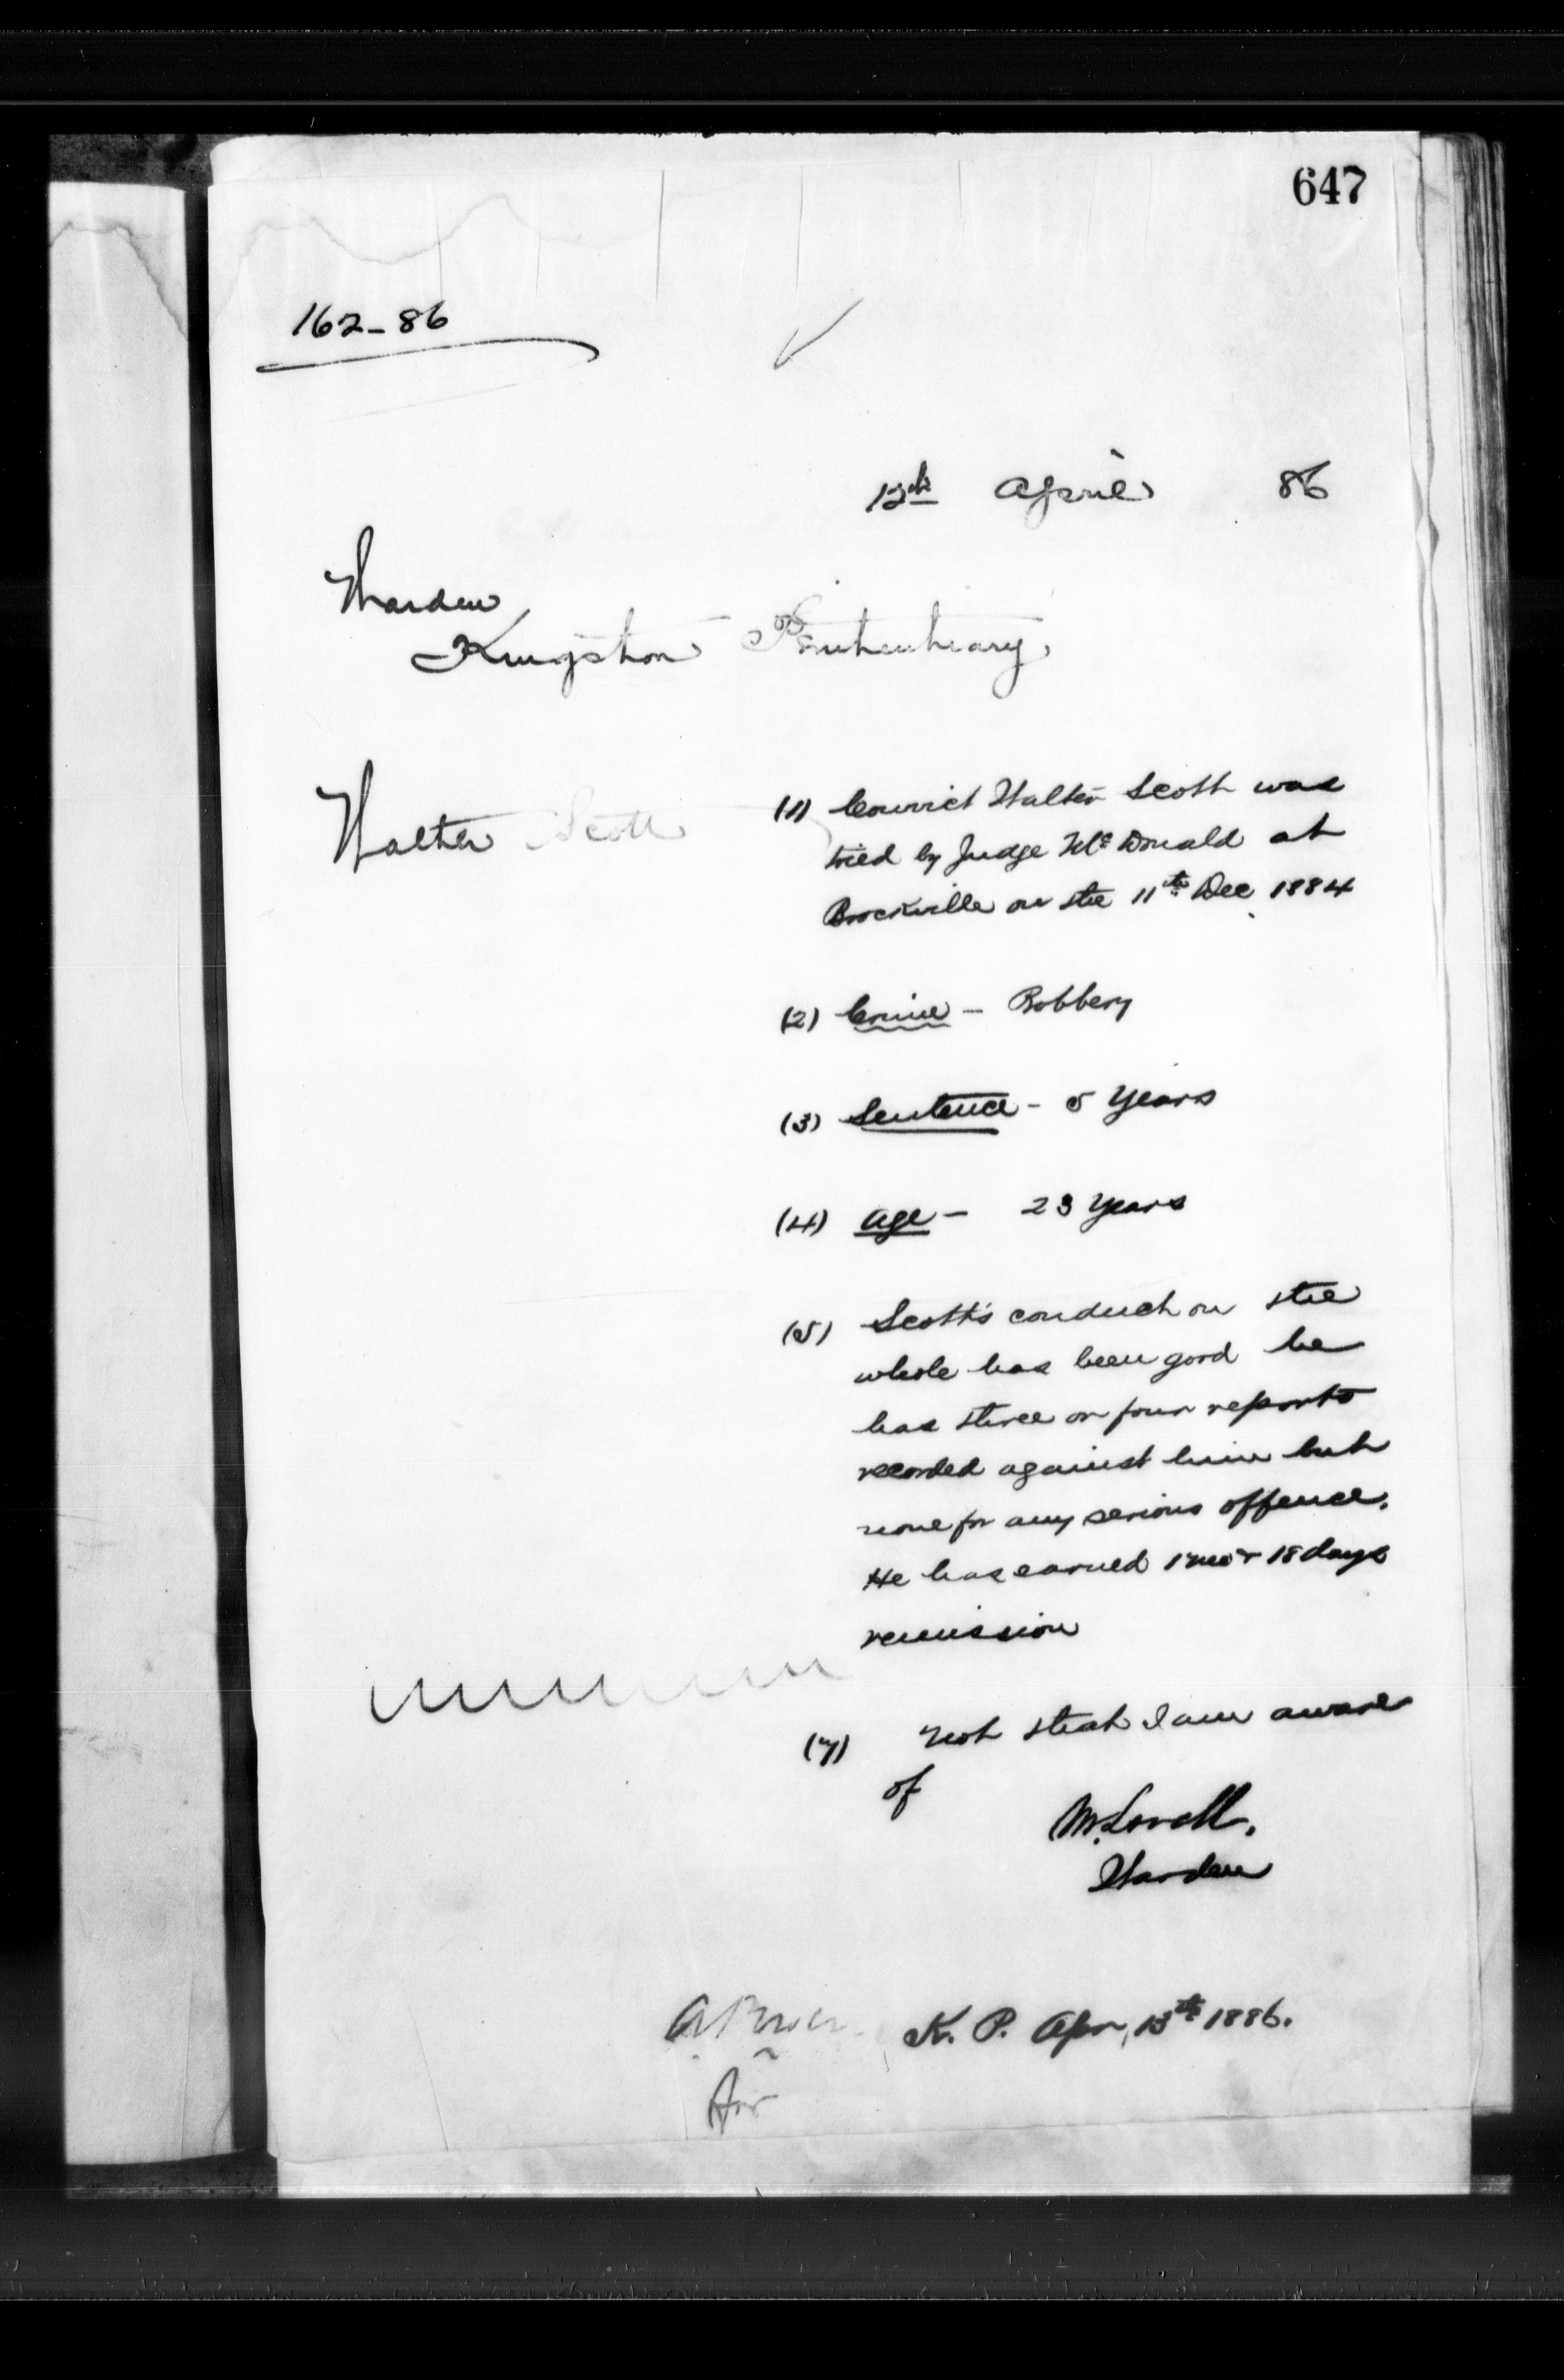 647
162-86
12th April 86
Warden
Kingston Penitentiary
Walter Scott
(1) Convict Walter Scott was
tried by Judge McDonald at
Brockville on the 11th Dec 1884
(2) Crime - Robbery
(3) Sentence - 5 Years
(4) Age - 23 Years
(5) Scott's conduct on the
whole has been good he
has three or four reports
recorded against him but
none for any serious offence.
He has earned 1 mo & 18 days
remission
(7) Not that I am aware
of
M. Lavell.
Warden
K. P. Apr, 13th 1886.